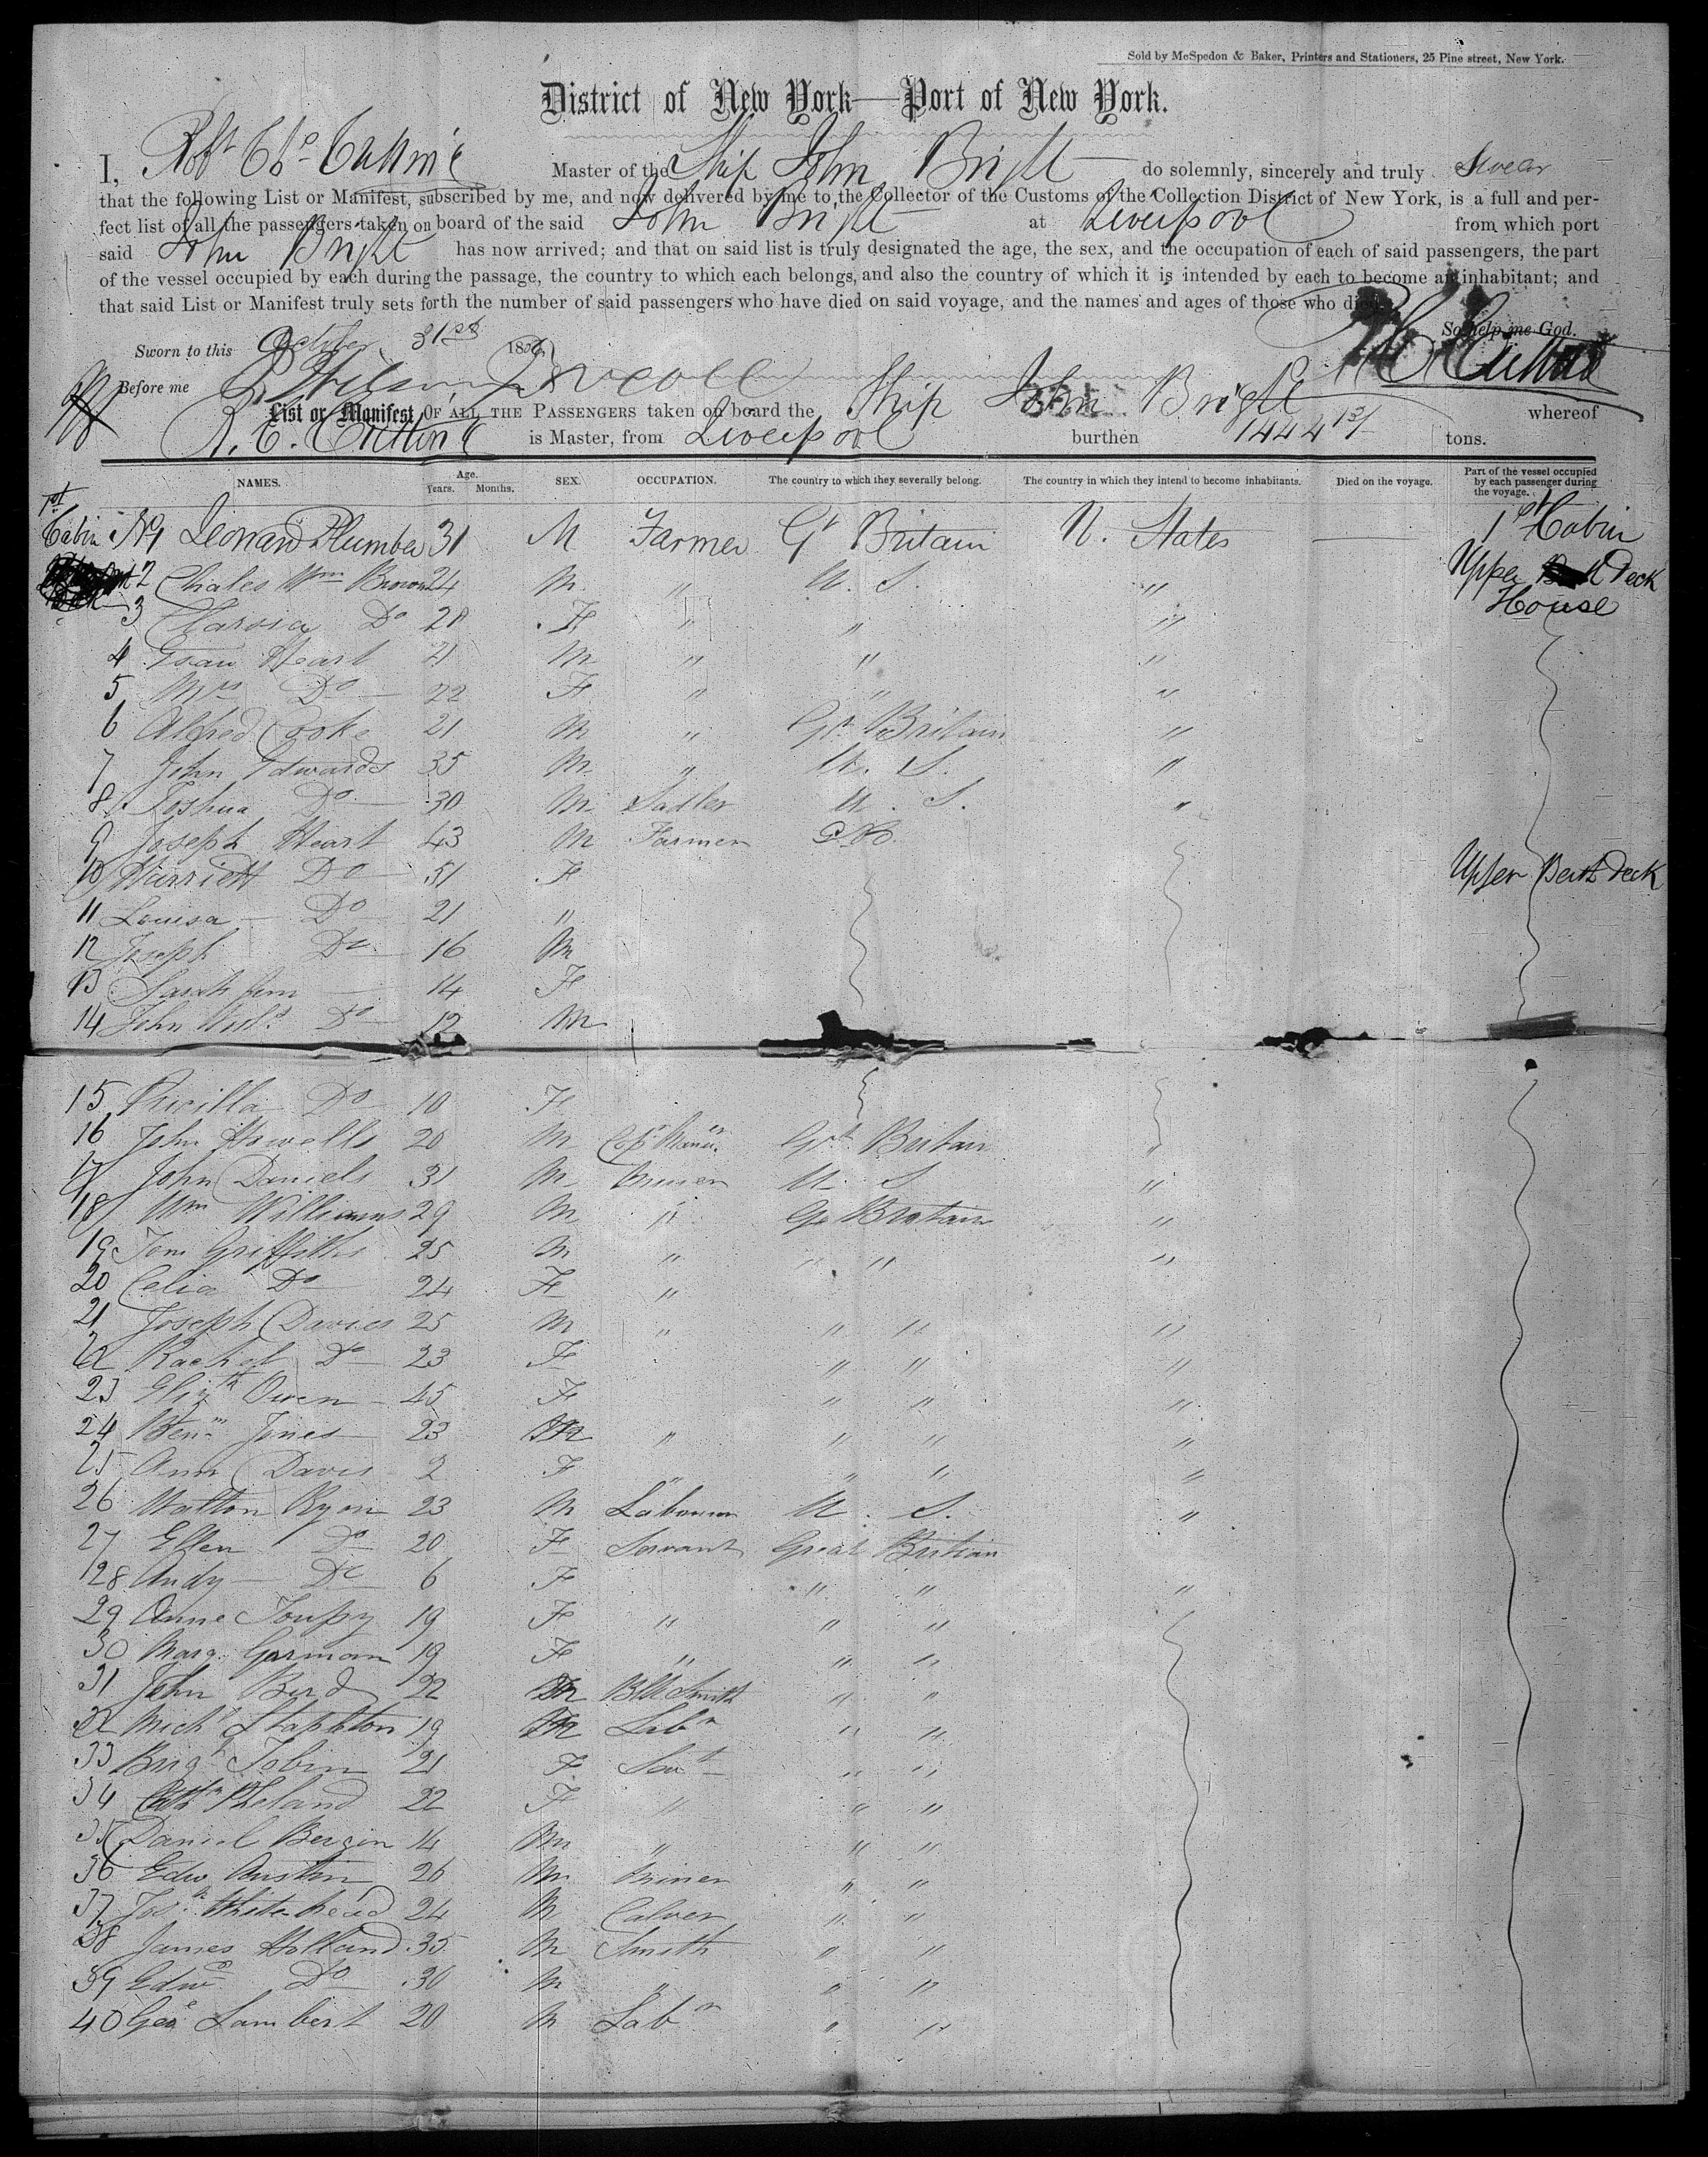 Sold by McSpedon & Baker, Printers and Stationers, 25 Pine street, New York.
District of New York—Port of New York.
I, Robt Master of the Ship John Bright do solemnly, sincerely and truly Swear
that the following List or Manifest, subscribed by me, and now delivered by me to the Collector of the Customs of the Collection District of New York, is a full and per-
fect list of all the passengers taken on board of the said John Bright at Liverpool from which port
said John Bright has now arrived; and that on said list is truly designated the age, the sex, and the occupation of each of said passengers, the part
of the vessel occupied by each during the passage, the country to which each belongs, and also the country of which it is intended by each to become an inhabitant; and
that said List or Manifest truly sets forth the number of said passengers who have died on said voyage, and the names and ages of those who died.
So help me God.
Sworn to this October 31st 185
Before me
List or Manifest OF ALL THE PASSENGERS taken on board the Ship John Bright whereof
R. C. Cutting is Master, from Liverpool burthen 1444 tons.
NAMES. Age. Years. Months. SEX. OCCUPATION. The country to which they severally belong. The country in which they intend to become inhabitants. Died on the voyage. Part of the vessel occupied by each passenger during the voyage.
1st Cabin No 1 Leonard Plumber 31 M Farmer Gt Britain U. States 1st Cabin
2 Charles Wm Brown 24 M " U. S. " Upper Deck
House
3 Do 28 F " " "
4 Heart 21 M " " "
5 Mrs Do 22 F " " "
6 Alfred Cooke 21 M " Gt Britain "
7 John Edwards 35 M " U. S. "
8 Joshua Do 30 M Sadler U. S. "
9 Joseph Heart 43 M Farmer Do
10 Harriett Do 51 F Upper Deck
11 Louisa Do 21 "
12 Joseph Do 16 M
13 Sarah Ann 14 F
14 John Do 12 M
15 Pricilla Do 10 F
16 John Howells 20 M Gt Britain "
17 John Daniels 31 M Miner U. S. "
18 Wm Williams 29 M " Gt Britain "
19 Griffiths 25 M " " " "
20 Celia Do 24 F "
21 Joseph Davies 25 M " " " "
22 Rachel Do 23 F " " "
23 Elizth Owen 45 F " " "
24 Benn Jones 23 M " " " "
25 Ann Davis 2 F " " " "
26 Walton Ryan 23 M Labourer U. S. "
27 Ellen Do 20 F Servant Great Britian
28 Andy Do 6 F " " "
29 Anne 19 F " " "
30 Marg. Garman 19 F " " "
31 John Burd 22 M Blk Smith " "
32 Michl Stapleton 19 M Labr " "
33 Brigt Tobin 21 F Sert " "
34 Cathn Pheland 22 F " " "
35 Daniel Bergin 14 M " " "
36 Edw Austin 26 M Miner " "
37 Josh Whitehead 24 M " "
38 James Holland 35 M Smith " "
39 Edwd Do 30 M " " "
40 Geo Lambert 20 M Labr " "